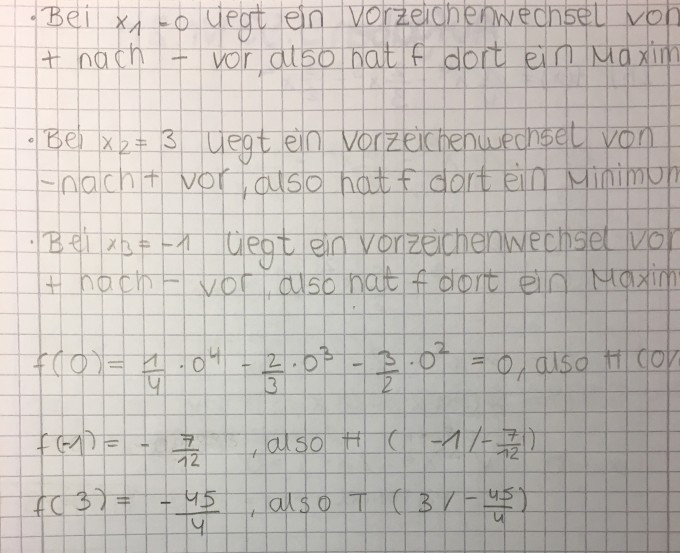 · Bei x₁ = 0 liegt ein Vorzeichenwechsel von
+ nach - vor, also hat f dort ein Maxim
· Bei x₂ = 3 liegt ein Vorzeichenwechsel von
- nach + vor, also hat f dort ein Minimum
· Bei x₃ = -1 liegt ein Vorzeichenwechsel von
+ nach - vor, also hat f dort ein Maxim
f(0) = 1/4 · 0⁴ - 2/3 · 0³ - 3/2 · 0² = 0, also H (0/
f(-1) = - 7/12, also H ( -1 / - 7/12 )
f( 3) = - 45/4, also T ( 3 / - 45/4 )